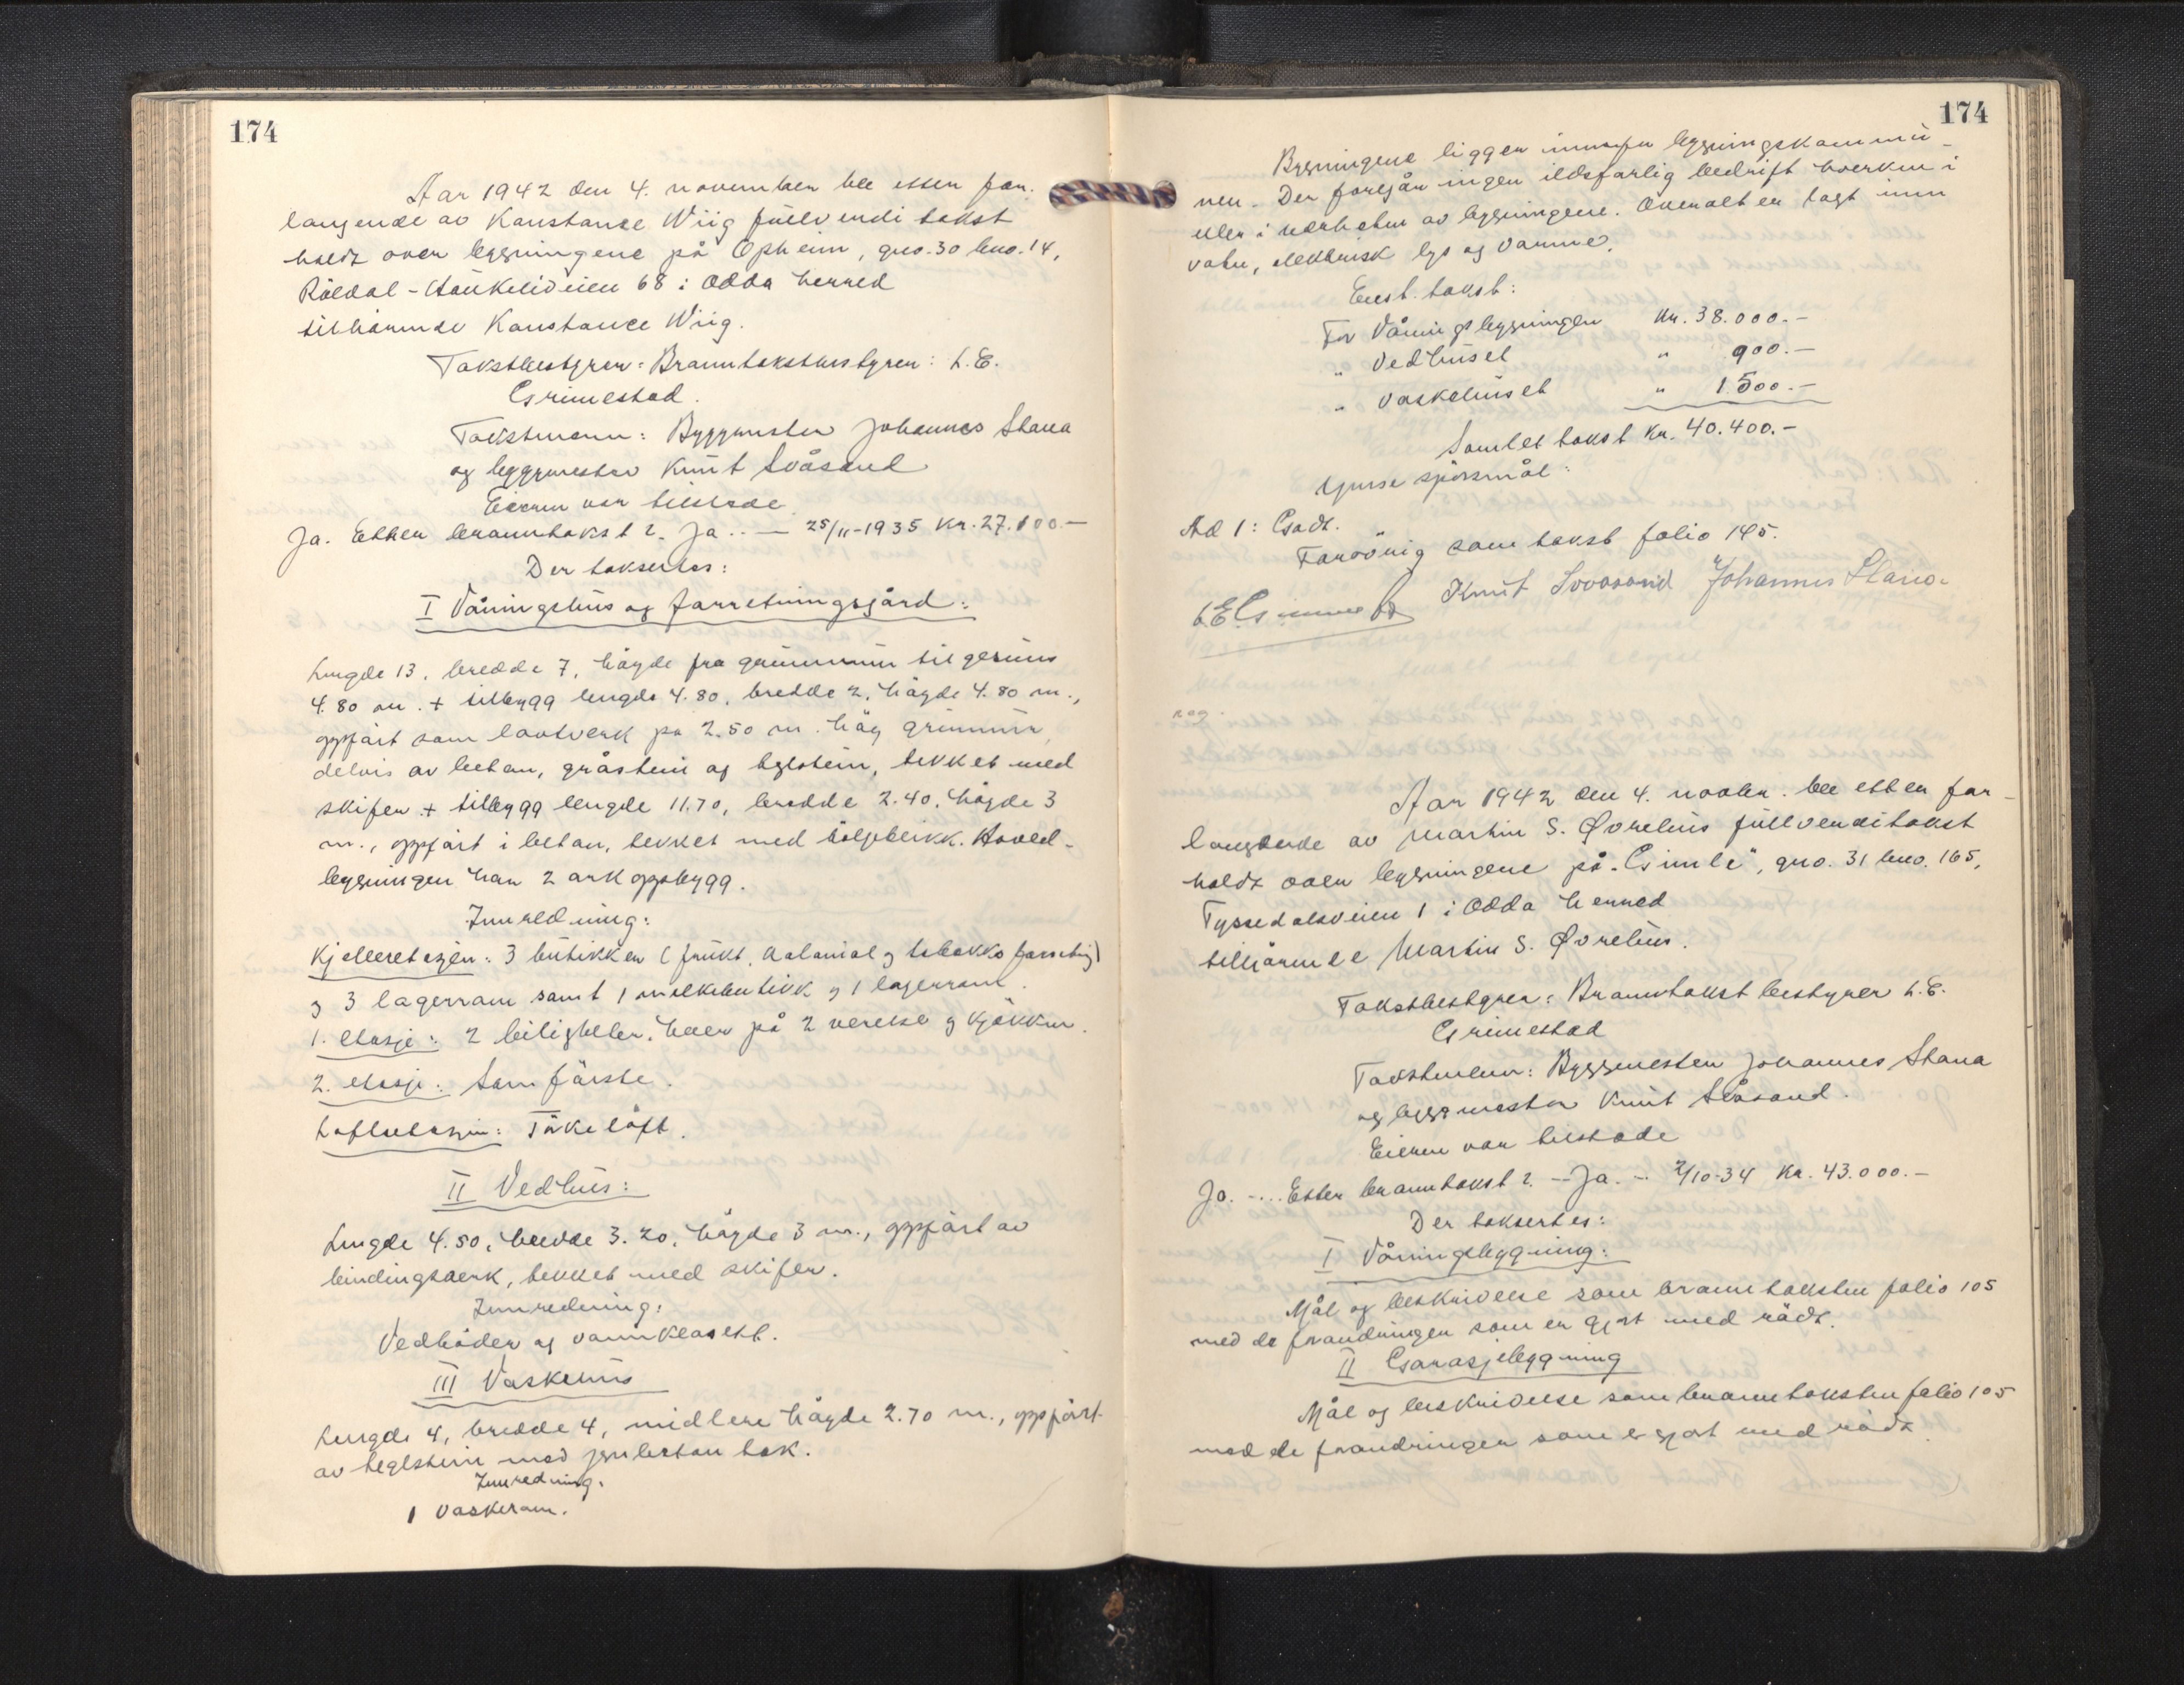 174
Aar 1942 den 4. november ble etter for-
langende av Konstance Wiig fullverditakst
holdt over bygningene på Opheim, gno. 30 bno. 14,
Röldal - Haukeliveien 68 i Odda herred
tilhörende Konstance Wiig.
Takstbestyrer: Branntakstbestyrer: L. E.
Grimestad.
Takstmenn: Byggmester Johannes Stana
og byggmester Knut Svåsand
Eieren var tilstede
Ja. Etter branntakst? Ja .. — 25/11-1935 Kr. 27.100.—
Der taksertes:
I Våningshus og forretningsgård:
Lengde 13, bredde 7, högde fra grunnmur til gesims
4.80 m. + tilbygg lengde 4.80, bredde 2, högde 4.80 m.,
oppfört som laftverk på 2.50 m. höy grunnmur
delvis av betong, gråstein og teglstein, tekket med
skifer + tilbygg lengde 11.70, bredde 2.40, högde 3
m., oppfört i betong, tekket med bölgeblikk. Hoved-
bygningen har 2 arkoppbygg.
Innredning:
Kjelleretasjen: 3 butikker (frukt, kolonial og tobakksforretning)
og 3 lagerrom samt 1 melkebutikk og 1 lagerrom.
1. etasje: 2 leiligheter, hver på 2 verelse og kjökken.
2. etasje: Som förste.
Loftsetasjen: Törkeloft.
II Vedhus:
Lengde 4.50, bredde 3.20, högde 3 m., oppfört av
bindingsverk, tekket med skifer.
Innredning:
Vedboder og vannklosett.
III Vaskehus
Lengde 4, bredde 4, midlere högde 2.70 m., oppfört
av teglstein med jernbetong tak.
Innredning:
1 vaskerom.
174
Bygningene ligger innenfor bygningskommu-
nen. Der foregår ingen ildsfarlig bedrift hverken i
eller i nærheten av bygningene. Overalt er lagt inn
vatn, elektrisk lys og varme.
Enst. takst:
For Våningsbygningen Kr. 38.000.-
" Vedhuset " 900.—
" Vaskehuset " 1.500.—
Samlet takst Kr. 40.400.-
Ymse spörsmål:
Ad 1: Godt.
Forövrig som takst folio 145.
L E Grimestad Knut Svaasand Johannes Stana
Aar 1942 den 4. novbr. ble etter for-
langende av Martin S. Øvrelius fullverditakst
holdt over bygningene på "Gimle", gno. 31 bno. 165,
Tyssedalsveien 1 i Odda herred
tilhörende Martin S. Øvrelius.
Takstbestyrer: Branntakstbestyrer L. E.
Grimestad
Takstmenn: Byggmester Johannes Stana
og byggmester Knut Svåsand.
Eieren var tilstede
Ja. -... Etter branntakst? — Ja. -- 2/10-34 Kr. 43.000.-
Der taksertes:
I Våningsbygning:
Mål og beskrivelse som branntaksten folio 105
med de forandringer som er gjort med rödt.
II Garasjebygning
Mål og beskrivelse som branntaksten folio 105
med de forandringer som er gjort med rödt